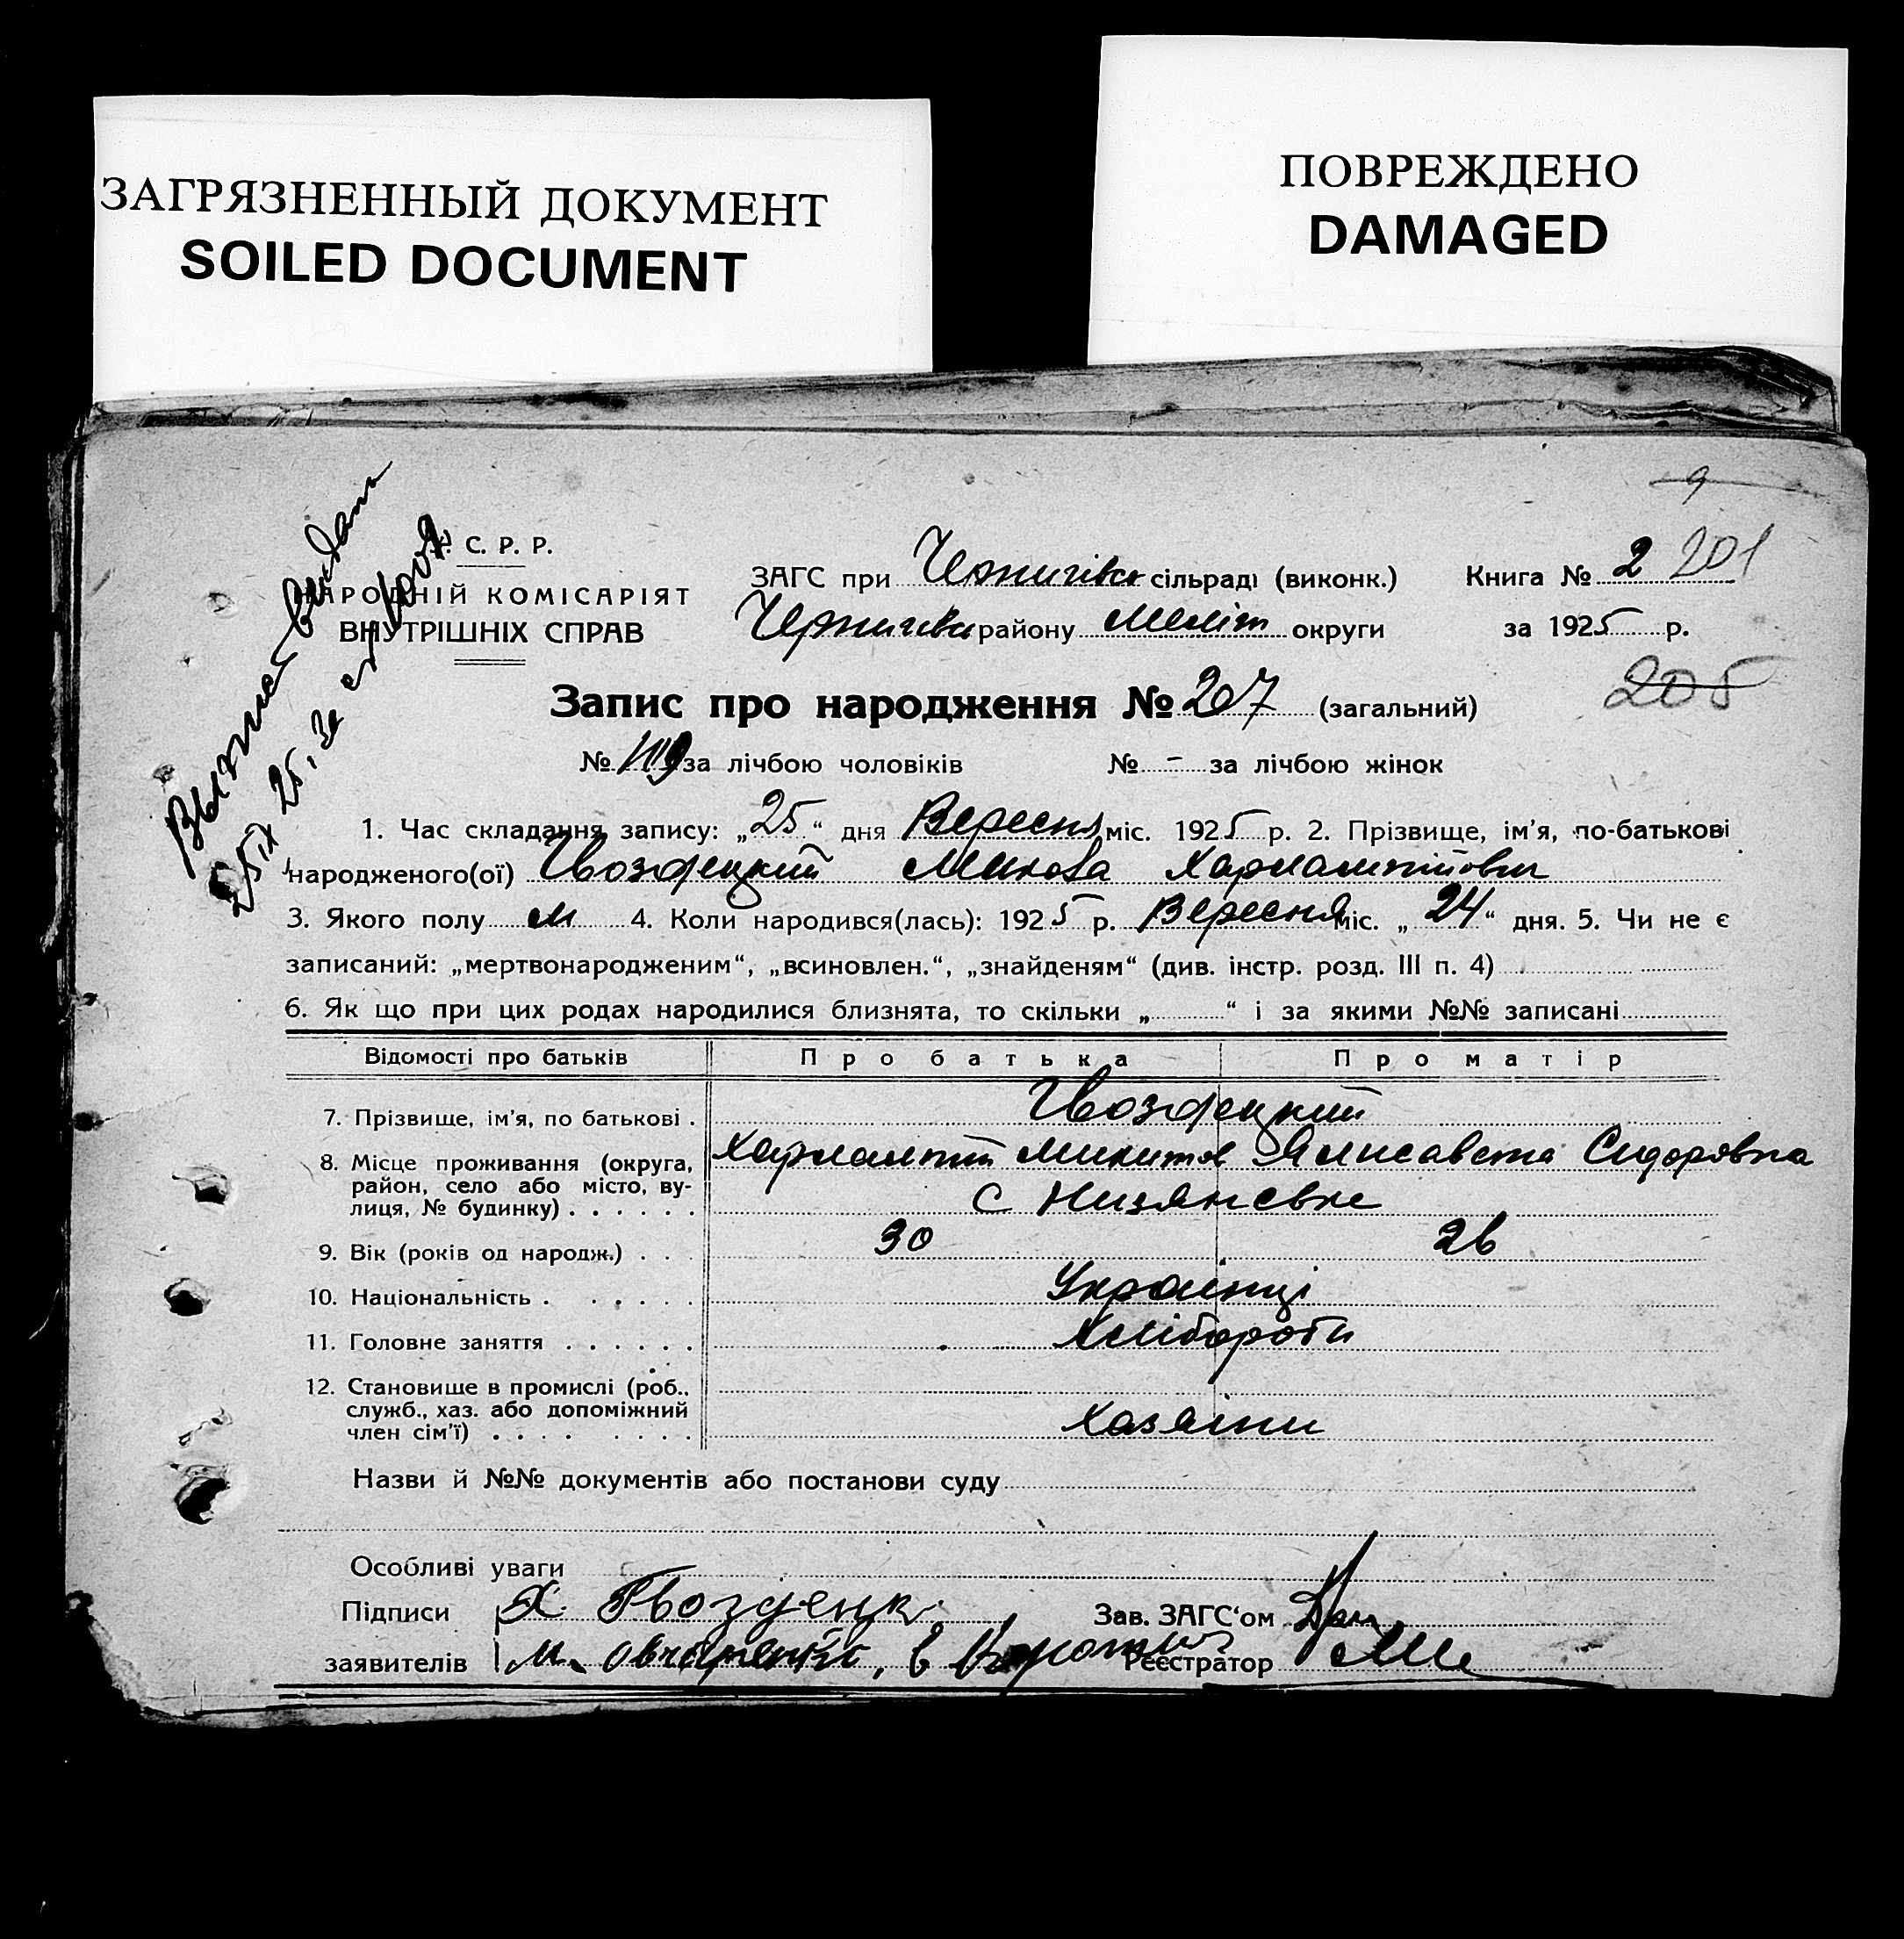 ЗАГРЯЗНЕННЫЙ ДОКУМЕНТ
SOILED DOCUMENT
ПОВРЕЖДЕНО
DAMAGED
9
С. Р. Р.
НАРОДНІЙ КОМІСАРІЯТ
ВНУТРІШНІХ СПРАВ
ЗАГС при Чернигівск сільраді (виконк.) Книга № 2 201
Чернигівск району Меліт округи за 1925 р.
205
Запис про народження № 207 (загальний)
№ 119 за лічбою чоловіків № - за лічбою жінок
25 IX 25
1. Час складання запису: „25“ дня Вересня міс. 1925 р. 2. Прізвище, ім'я, по-батькові
народженого(ої) Гвоздецкий Микола Харлампийович
3. Якого полу м 4. Коли народився(лась): 1925 р. Вересня міс. „24“ дня. 5. Чи не є
записаний: „мертвонародженим“, „всиновлен.“, „знайденям“ (див. інстр. розд. III п. 4)
6. Як що при цих родах народилися близнята, то скільки „ “ і за якими №№ записані
Відомості про батьків Про батька Про матір
7. Прізвище, ім'я, по батькові . Гвоздецкий
Харлампий Микитов Ялисавета Сидоровна
8. Місце проживання (округа, район, село або місто, вулиця, № будинку) . . . . . . с Низяневке
9. Вік (років од народж.) . . . 30 26
10. Національність . . . . . . Українці
11. Головне заняття . . . . . . Хлібороби
12. Становище в промислі (роб., служб., хаз. або допоміжний член сім'ї) . . . . . . . . Хазяіни
Назви й №№ документів або постанови суду
Особливі уваги
Підписи Х Гвоздецк Зав. ЗАГС'ом
заявителів М. Реєстратор